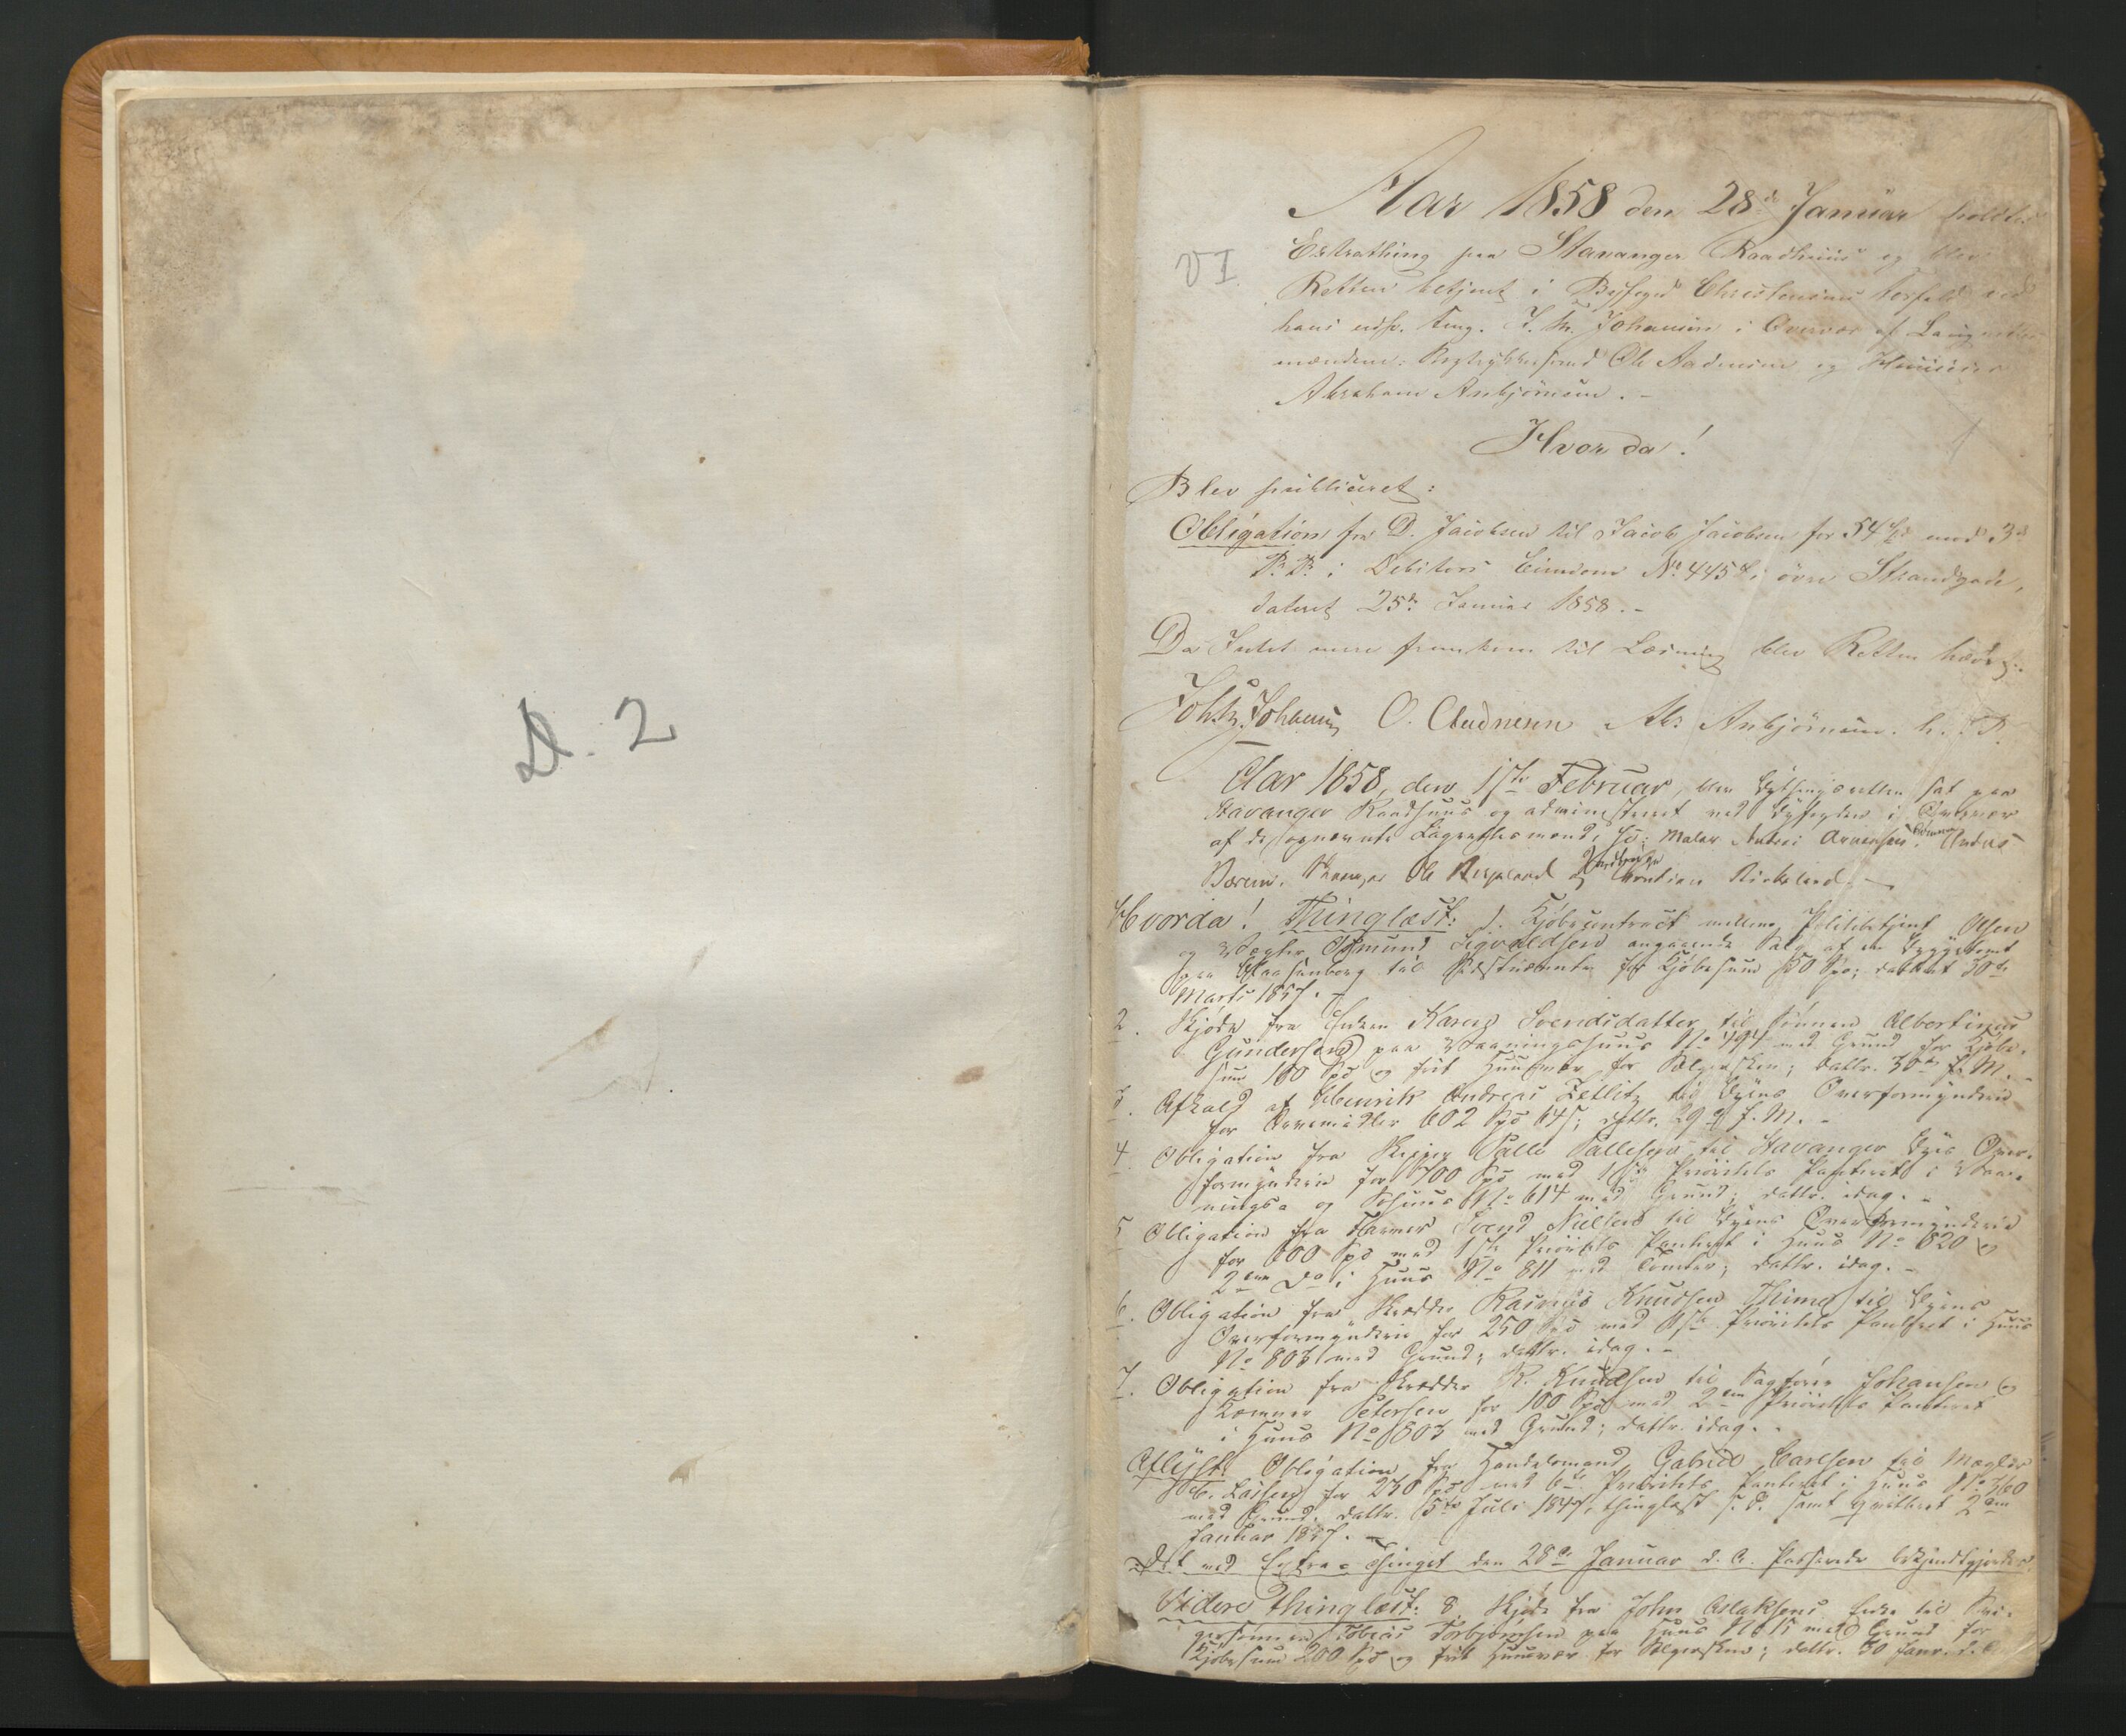 D. 2
VI
Aar 1858 den 28de Januar holdtes
Extrathing paa Stavanger Raadhuus og blev
Retten betjent i Byfoged Christensens Forfald ved
hans edsv. Fuldm. J. M. Johansen i Overvær af Laugrettes
mændene: Ole Aadnesen og
Abraham Anbjörnsen. -
Hvor da!
Blev publiceret:
Obligation fra D. Jacobsen til Jacob Jacobsen for 54 Spd med 3d
Pr. Pr. i Debitors Eiendom No 445 i övre Strandgade,
dateret 25de Januar 1858. -
Da Intet mere fremkom til Læsning blev Retten hævet.
Joh. M. Johansen O. Aadnesen Abr. Anbjörnsen. h. P.
Aar 1858, den 1ste Februar, blev Bythingsretten sat paa
Stavanger Raadhuus og administreret ved Byfogden i Overvær
af de opnævnte Lagrettesmænd, so: Maler Andreas Arnesen, Andreas
Ole Respland og Kirkeland. -
Hvorda! Thinglæst: 1. Kjöbecontract mellem Politibetjent Olsen
og Vægter Osmund Sigvaldsen angaaende Salg af en Byggetomt
paa Blaasenborg til Sidstnævnte for Kjöbesum 50 Spd; dateret 30te
Marts 1857. -
2. Skjöde fra Enken Karen Svendsdatter til Sönnen Albertinus
Gundersen paa Vaaningshuus No 494 med Grund for Kjöbe-
sum 100 Spd og frit Huusvær for Sælgersken; dattr. 30te f. M. -
3. Afkald af Henrik Andreas Zetlitz til Byens Overformynderie
for Arvemidler 602 Spd 64 s; dattr. 29de f. M. -
4 Obligation fra Skipper Palle Pallesen til Stavanger Byes Over-
formynderie for 700 Spd med 1ste Prioritets Panteret i Vaa-
nings- og Söhuus No 614 med Grund; dattr. idag. -
5 Obligation fra Garver Svend Nielsen til Byens Overformynderie
for 600 Spd med 1ste Prioritets Panteret i Huus No 820 og
2den Do i Huus No 811 med Tomter; dattr. idag. -
6. Obligation fra Skrædder Rasmus Knudsen Thime til Byens
Overformynderie for 250 Spd med 1ste Prioritets Panteret i Huus
No 803 med Grund; dattr. idag. -
7. Obligation fra Skrædder R. Knudsen til Sagförer Johansen og
Kæmner Petersen for 100 Spd med 2den Prioritets Panteret
i Huus No 803 med Grund; dattr. idag. -
Aflyst: Obligation fra Handelsmand Gabriel Carlsen til Mægler
C. for 230 Spd med 6te Prioritets Panteret i Huus No 760
med Grund, dattr. 5te Juli 1847, thinglæst s. d. samt qvitteret 2den
Januar 1857. -
Det ved Extra-Thinget den 28de Januar d. A. Passerede bekjendtgjordes.
Videre thinglæst: 8 Skjöde fra John Aslaksens Enke til Svi-
gersönnen Tobias Torbjörnsen paa Huus No 15 med Grund for
Kjöbesum 200 Spd og frit Huusvær for Sælgersken; dattr. 30 Janr. d. A.